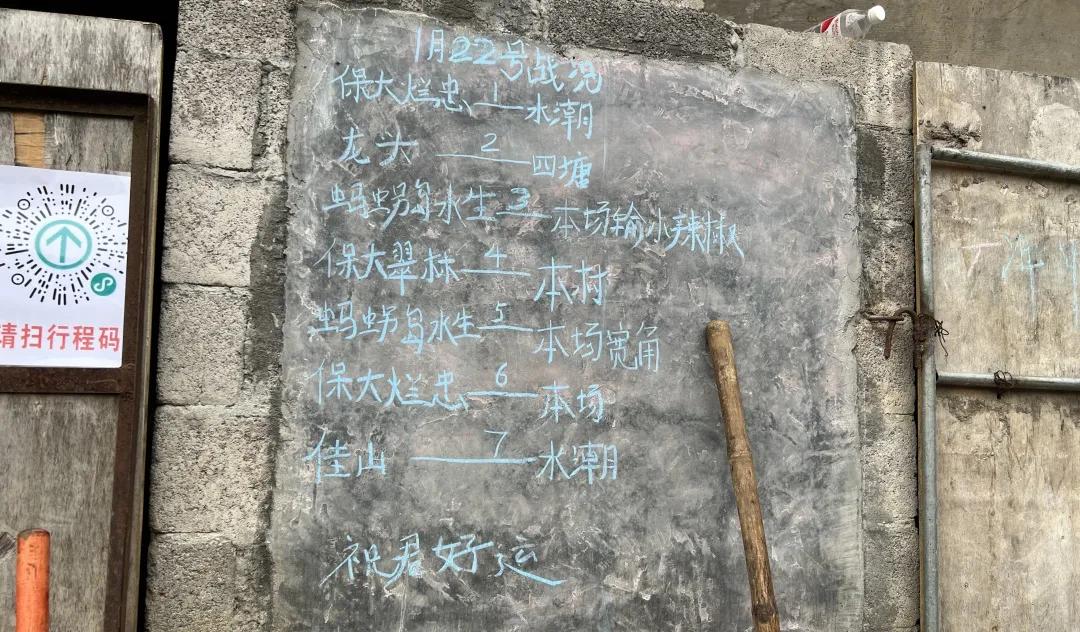 1月22号战况
保大烂忠 1 水潮
龙头 2 四塘
蚂蝲岛水生 3 本场输小辣椒
保大翠林 4 本村
蚂蝲岛水生 5 本场宽角
保大烂忠 6 本场
佳山 7 水潮
祝君好运
请扫行程码